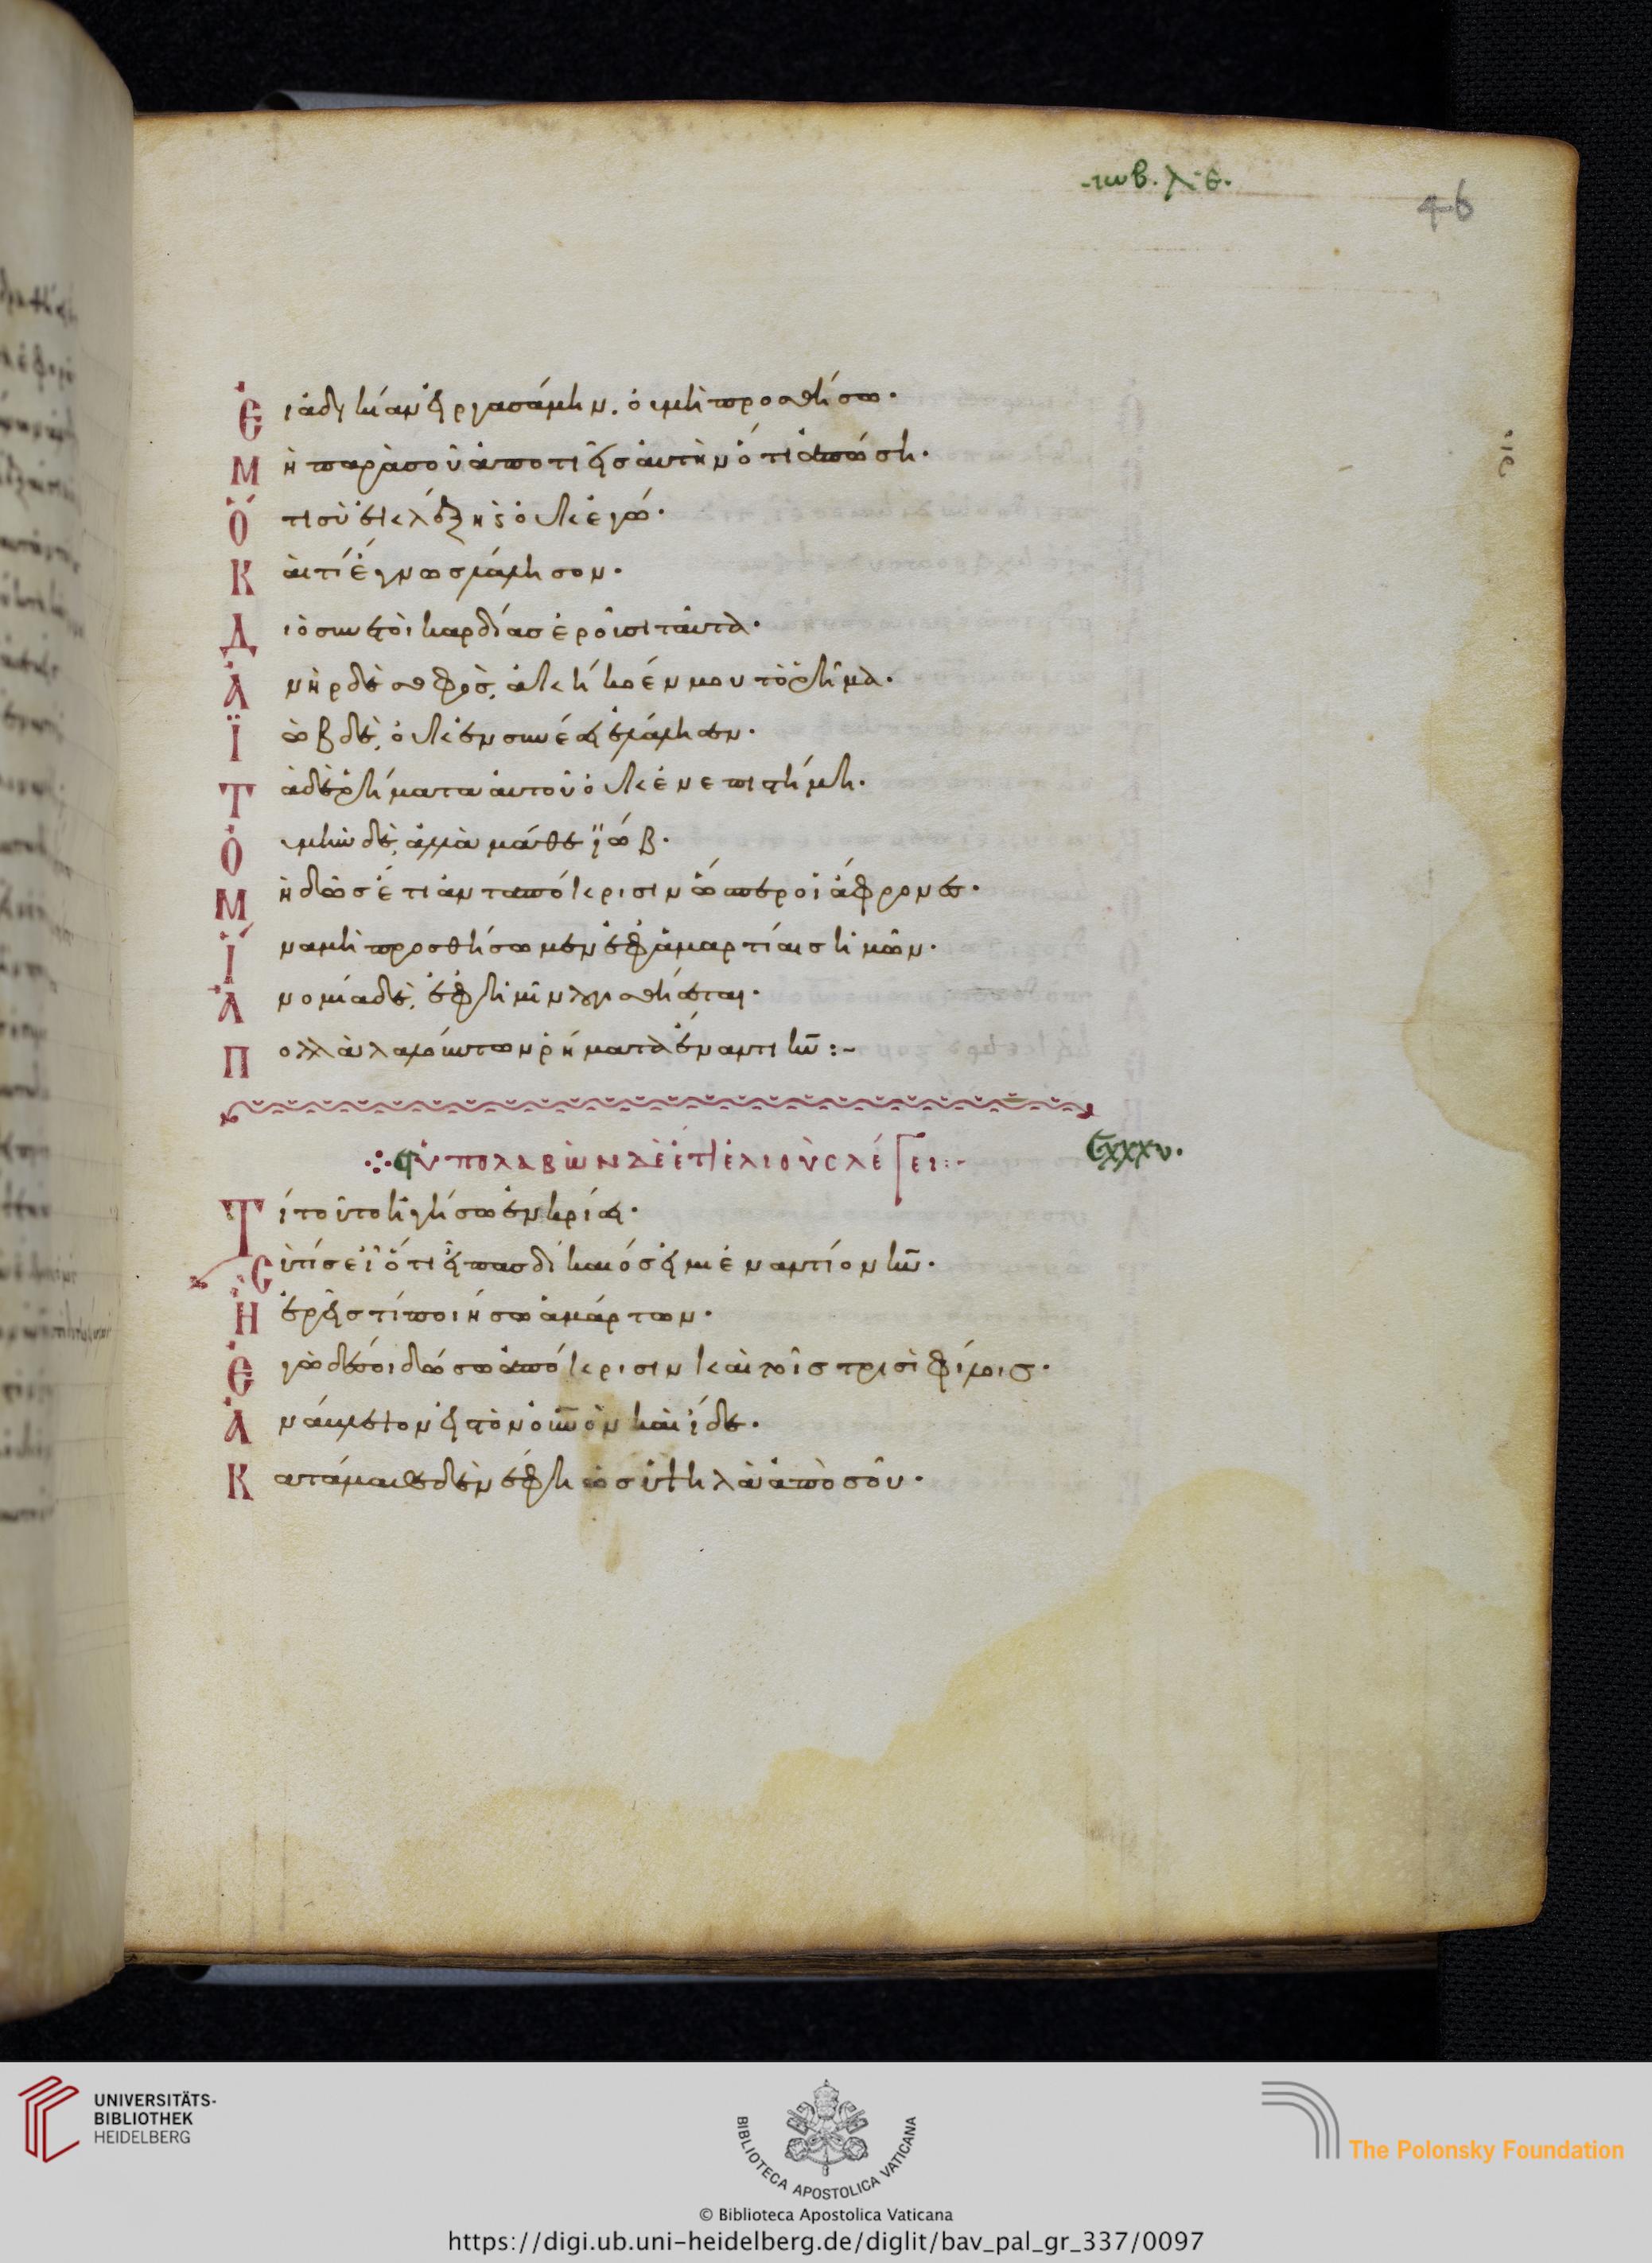 ιωβ. λε.
46
Εἰ ἀδικίαν εἰργασάμην. οὐ μὴ προσθήσω·
Μὴ παρὰ σοῦ ἀποτίσει αὐτὴν ὅτι ἀπώσῃ·
Ὅτι σὺ ἐκλέξῃ κ οὐκ ἐγώ·
Καὶ τί ἔγνως λάλησον·
Διὸ συνετοὶ καρδίας ἐροῦσι ταῦτα·
Ἀνὴρ δὲ σοφὸς, ἀκήκοέν μου τὸ ῥῆμα·
Ϊὼβ δὲ, οὐκ ἐν συνέσει ἐλάλησεν·
Τὰ δὲ ῥήματα αὐτοῦ οὐκ ἐν ἐπιστήμῃ·
Οὐ μὴν δὲ, ἀλλὰ μάθε ϊώβ·
Μὴ δῷς ἔτι ἀνταπόκρισιν ὥσπερ οἱ ἄφρονες·
Ἵνα μὴ προσθήσωμεν ἐφ ἁμαρτίαις ἡμῶν·
Ἀνομία δὲ, ἐφ ἡμῖν λογισθήσεται·
Πολλὰ λαλούντων ῥήματα ἐναντι κυ :-
ὑπολαβὼν δὲ ἐτι ἐλιοὺς λέγει :- Cxxxv.
Τί τοῦτο ἡγήσω ἐν κρίσει·
Σὺ τίς εἶ ὅτι εἶπας δίκαιός εἰμι ἐναντίον κυ·
Ἢ ἐρεῖς τί ποιήσω ἁμαρτών·
Ἐγὼ δέ σοι δώσω ἀπόκρισιν καὶ τοῖς τρισὶ φίλοις·
Ἀνάβλεψον εἰς τὸν οὐνὸν καὶ ἴδε·
Κατάμαθε δὲ νέφη ὡς ὑψηλὰ ἀπὸ σοῦ·
UNIVERSITÄTS-
BIBLIOTHEK
HEIDELBERG
BIBLIOTECA APOSTOLICA VATICANA
The Polonsky Foundation
© Biblioteca Apostolica Vaticana
https://digi.ub.uni-heidelberg.de/diglit/bav_pal_gr_337/0097